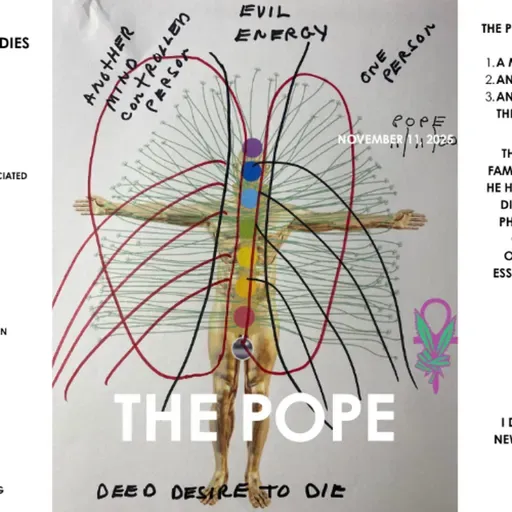 DIES
CIATED
N
G
EVIL
ENERGY
ANOTHER
MIND
CONTROLLED
PERSON
ONE
PERSON
POPE
NOVEMBER 11, 2025
THE POPE
DEED DESIRE TO DIE
THE P
1. A M
2. AN
3. AN
THE
TH
FAM
HE H
DI
PH
O
ESS
I D
NEW